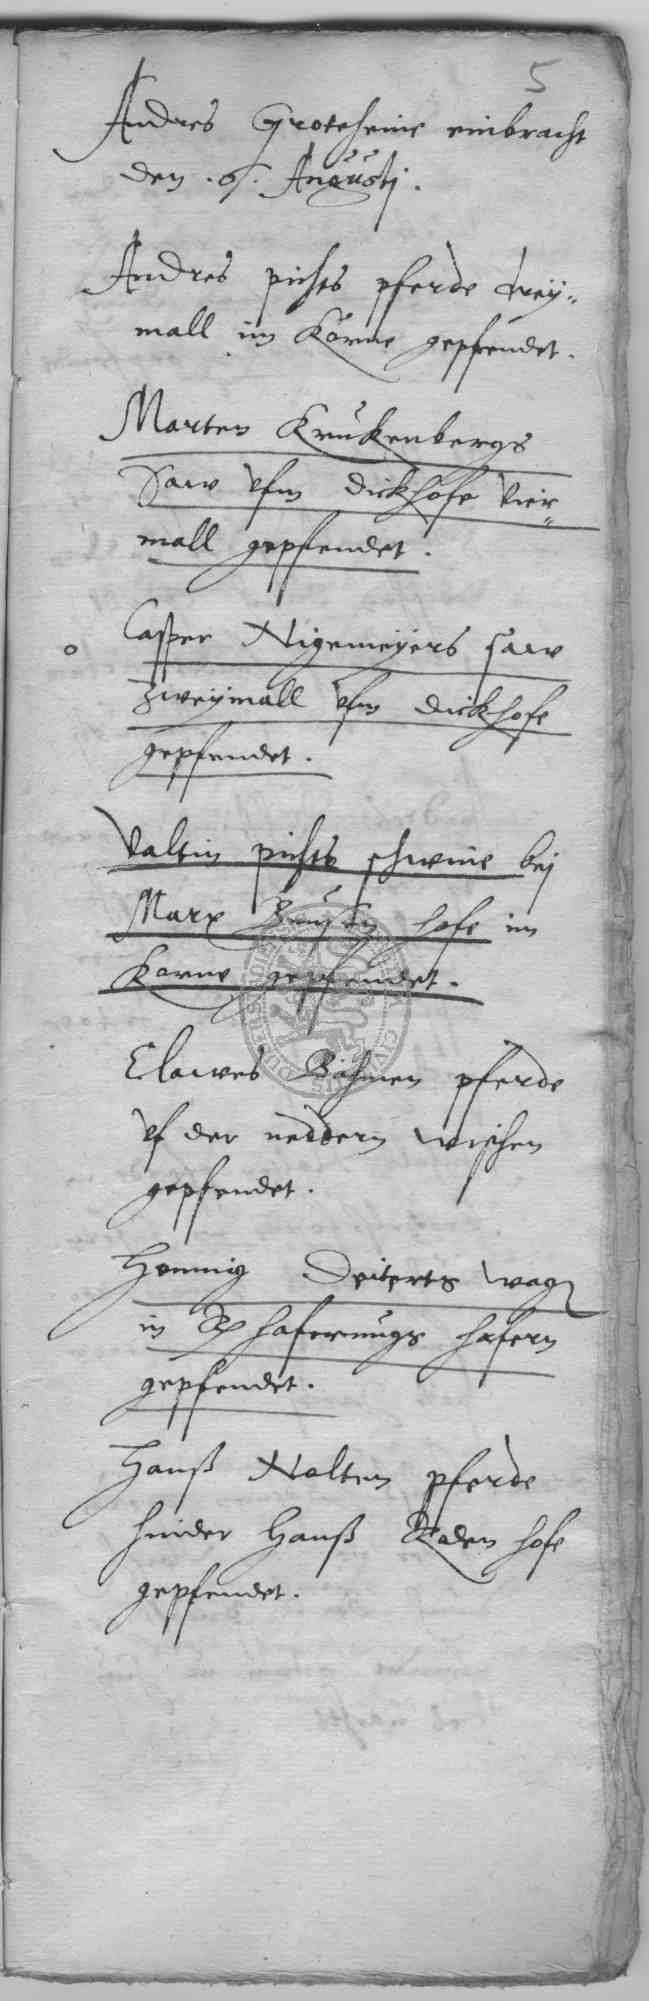 5
Andres Groteheine einbracht
den .6. Augustj.
Andres pichts pferde drey=
mall im Korne gepfendet.
Marten Krukenbergs
Saw vfm dickhofe vier=
mall gepfendet.
Casper Nigemeyers saw
zweymall vfm dickhofe
gepfendet.
Valtin pichts schweine bej
Marx hofe im
Korne gepfendet.
Clawes Böhmen pferde
vf der neddern wischen
gepfendet.
Hennig Deiterts wag
in haferungs hafern
gepfendet.
Hanß Nolten pferde
hinder Hanß Raden hofe
gepfendet.